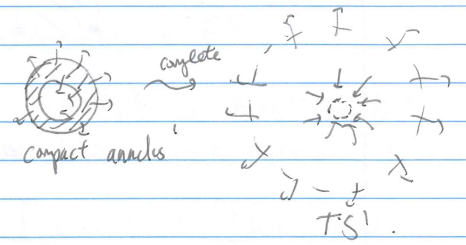 complete
compact annulus
TS¹.